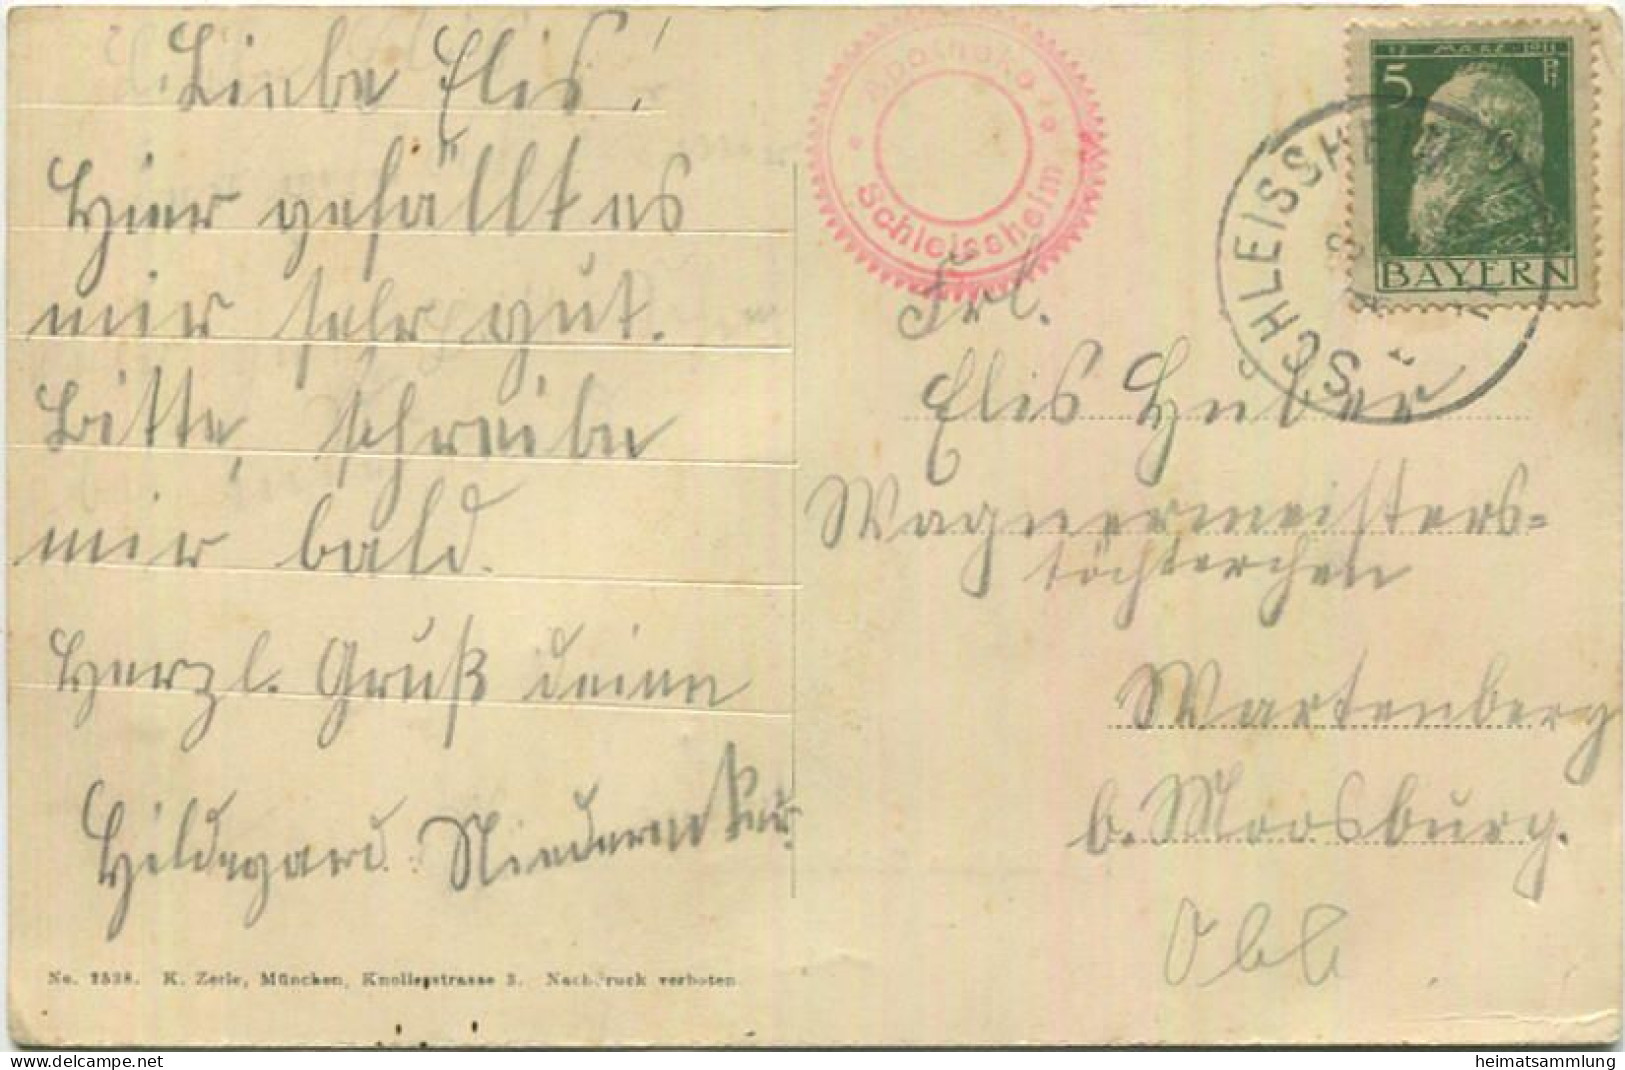 Liebe Elis!
Hier gefällt es
mir sehr gut.
Bitte, schreibe
mir bald.
Herzl. Gruß deine
Hildegard
No. 2538. K. Zerle, München, Knollerstrasse 3. Nachdruck verboten.
Apotheke
Schleissheim
12 MÄRZ 1911
5 Pf
BAYERN
SCHLEISSHEIM
Frl.
Elis Huber
Wagnermeisters-
töchterchen
Wartenberg
b. Moosburg.
Obb
heimatsammlung